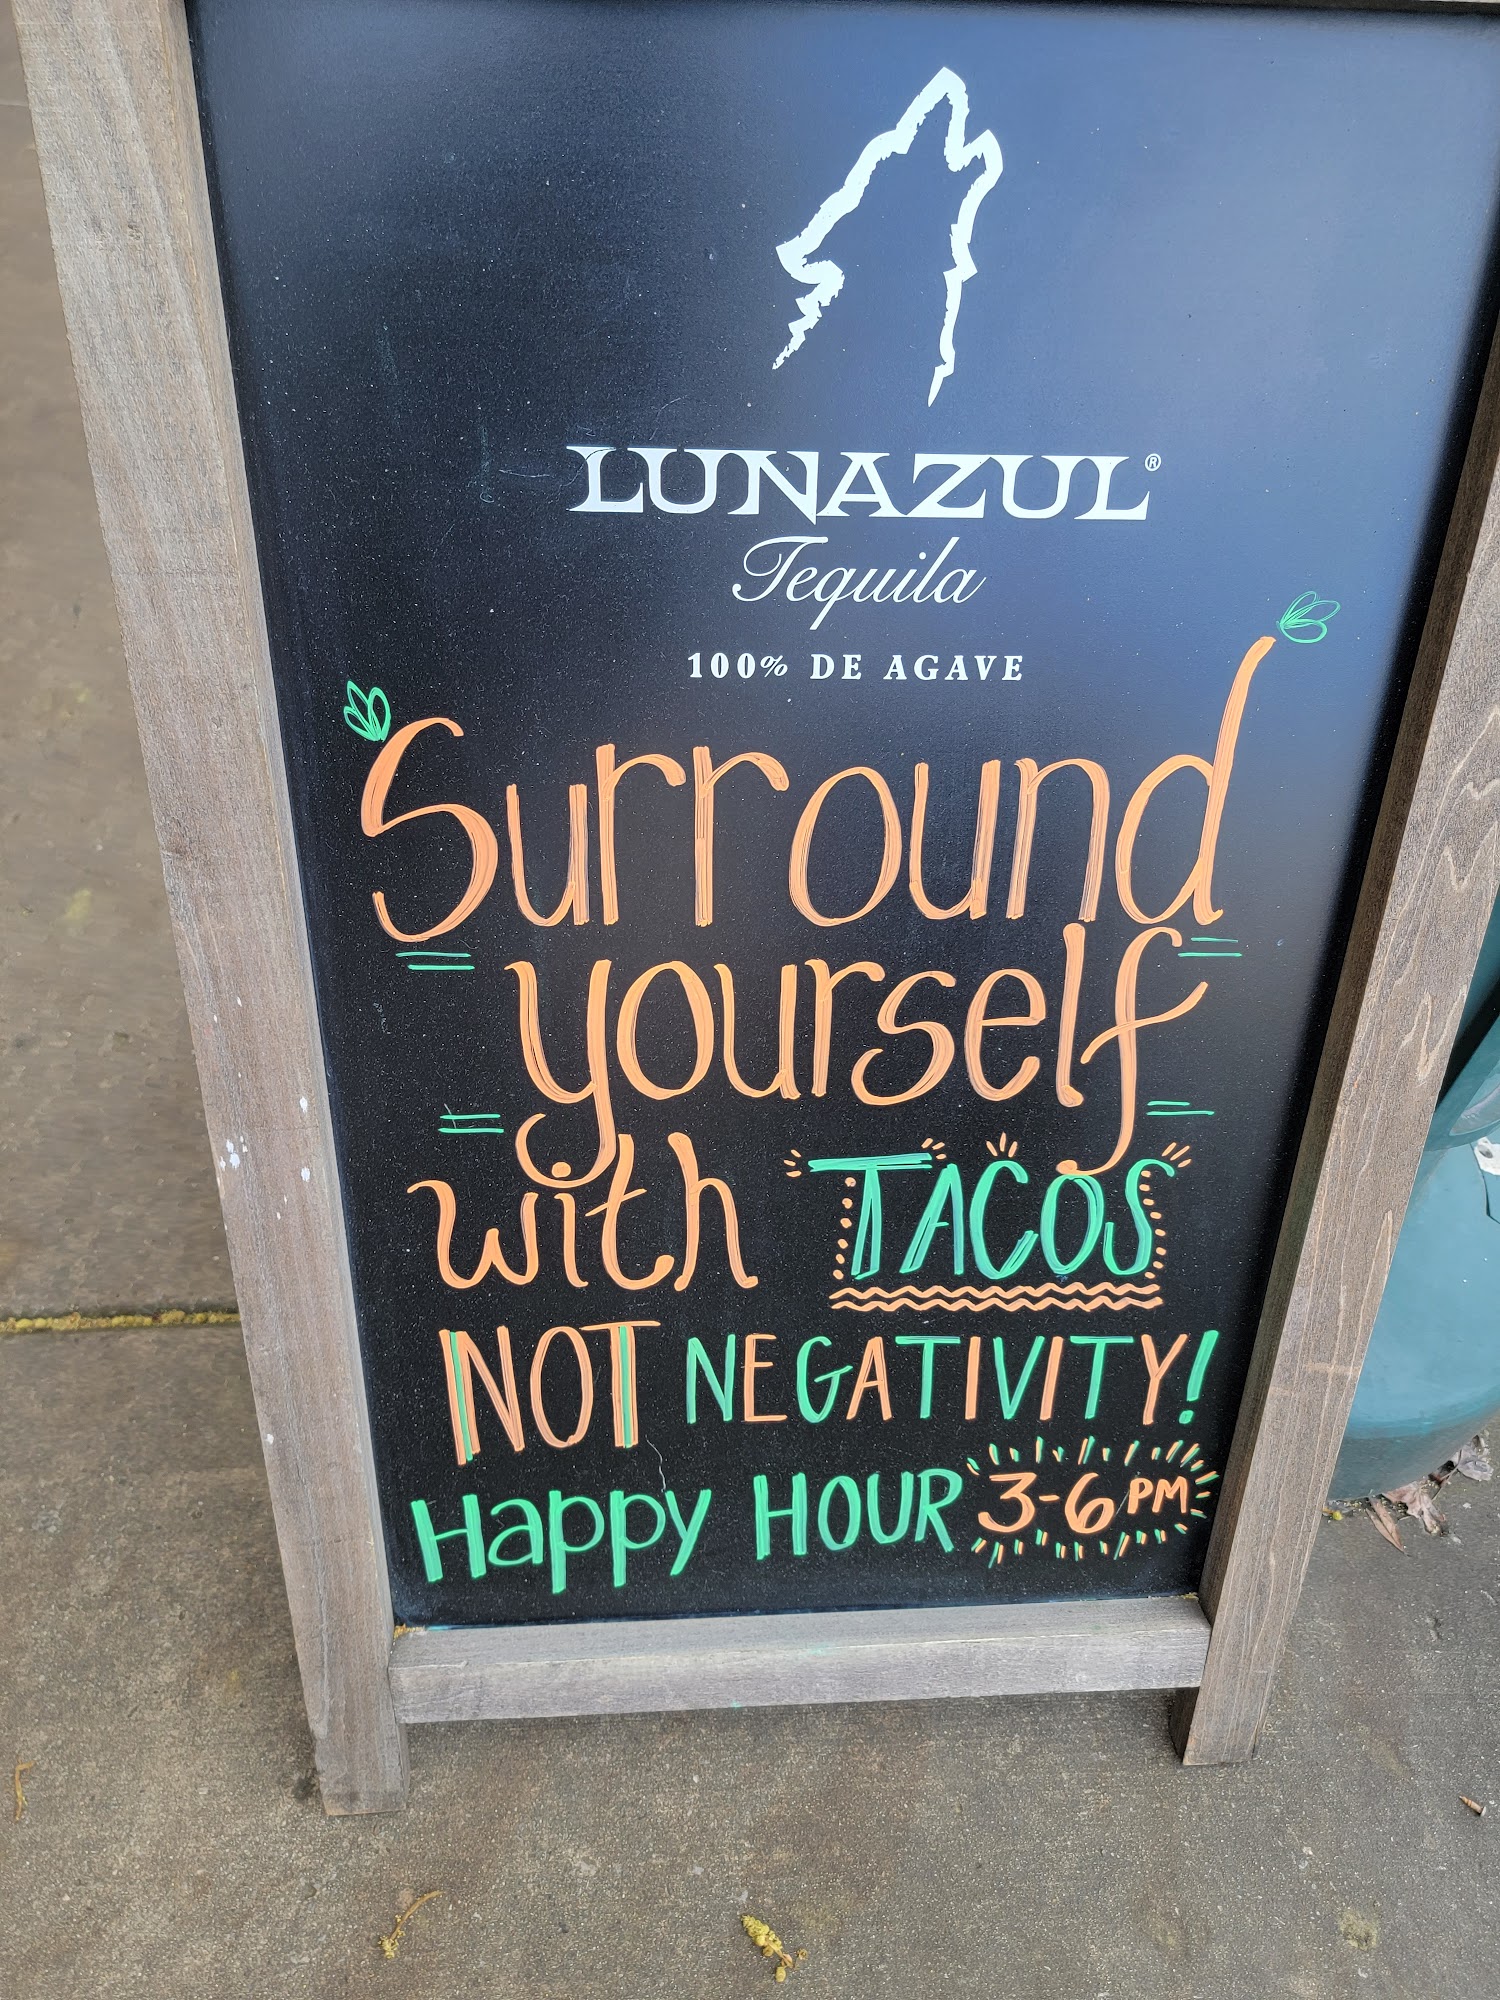 LUNAZUL®
Tequila
100% DE AGAVE
Surround
yourself
with TACOS
NOT NEGATIVITY!
Happy HOUR 3-6 PM